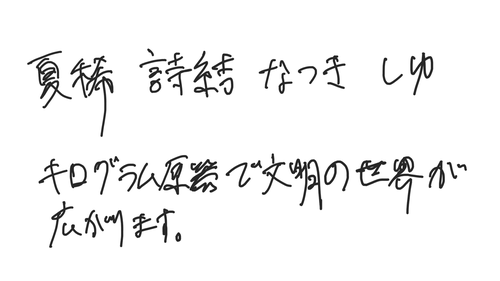 夏稀 詩結 なつき しゆ
キログラム原器で文明の世界が
広がります。